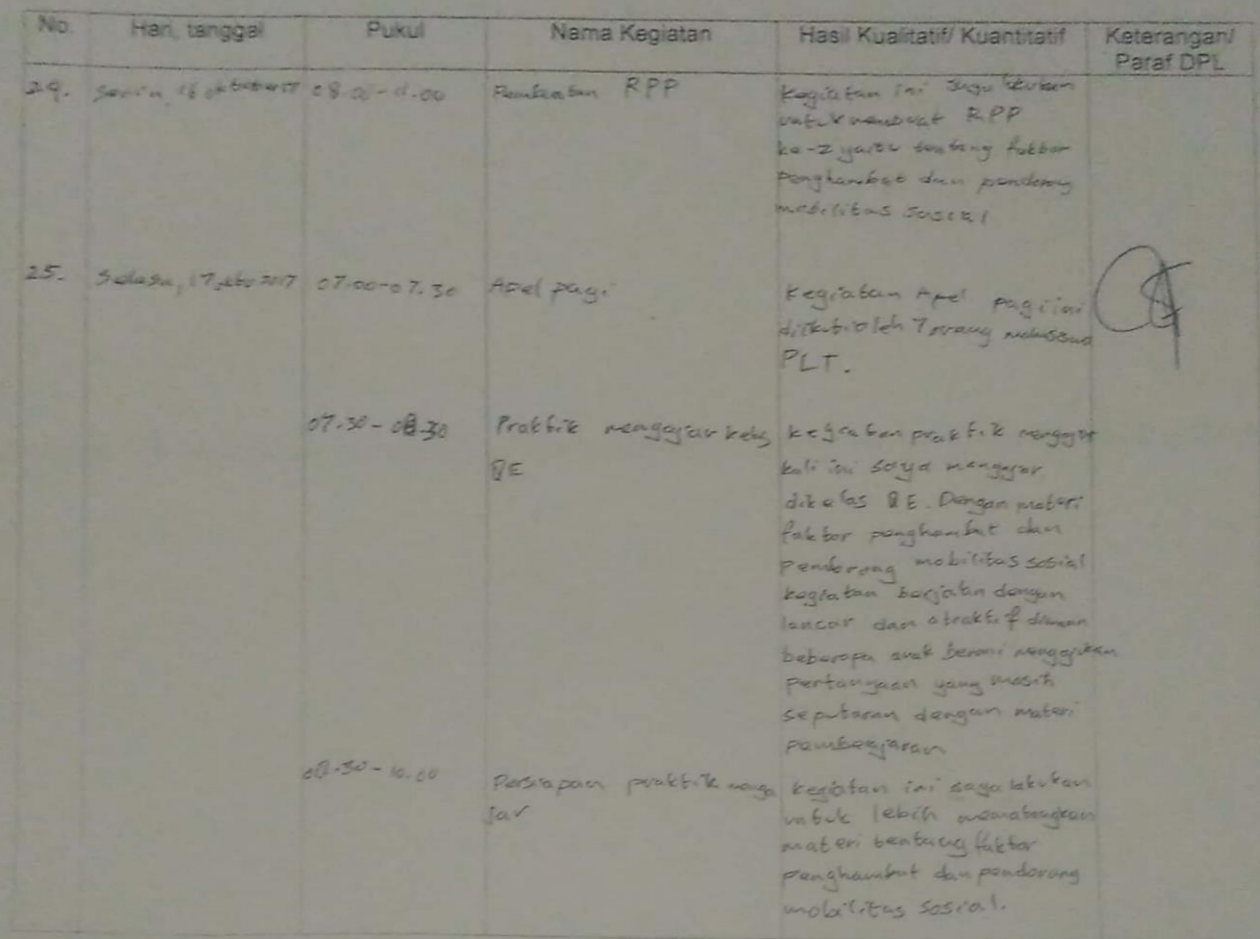 No. Hari, tanggal Pukul Nama Kegiatan Hasil Kualitatif/ Kuantitatif Keterangan/
Paraf DPL
24. Senin, 16 oktober 08.00-11.00 Pembuatan RPP Kegiatan ini saya lakukan
untuk membuat RPP
ke-2 yaitu tentang faktor
penghambat dan pendorong
mobilitas sosial
25. Selasa, 17 okto 2017 07.00-07.30 Apel pagi Kegiatan Apel pagi ini
diikuti oleh 7 orang mahasiswa
PLT.
07.30-08.30 Praktik mengajar kelas kegiatan praktik mengajar
8E kali ini saya mengajar
dikelas 8E. Dengan materi
faktor penghambat dan
pendorong mobilitas sosial
kegiatan berjalan dengan
lancar dan atraktif dimana
beberapa anak berani mengajukan
pertanyaan yang masih
seputaran dengan materi
pembelajaran
08.30-10.00 Persiapan praktik menga kegiatan ini saya lakukan
jar untuk lebih mematangkan
materi tentang faktor
penghambat dan pendorong
mobilitas sosial.